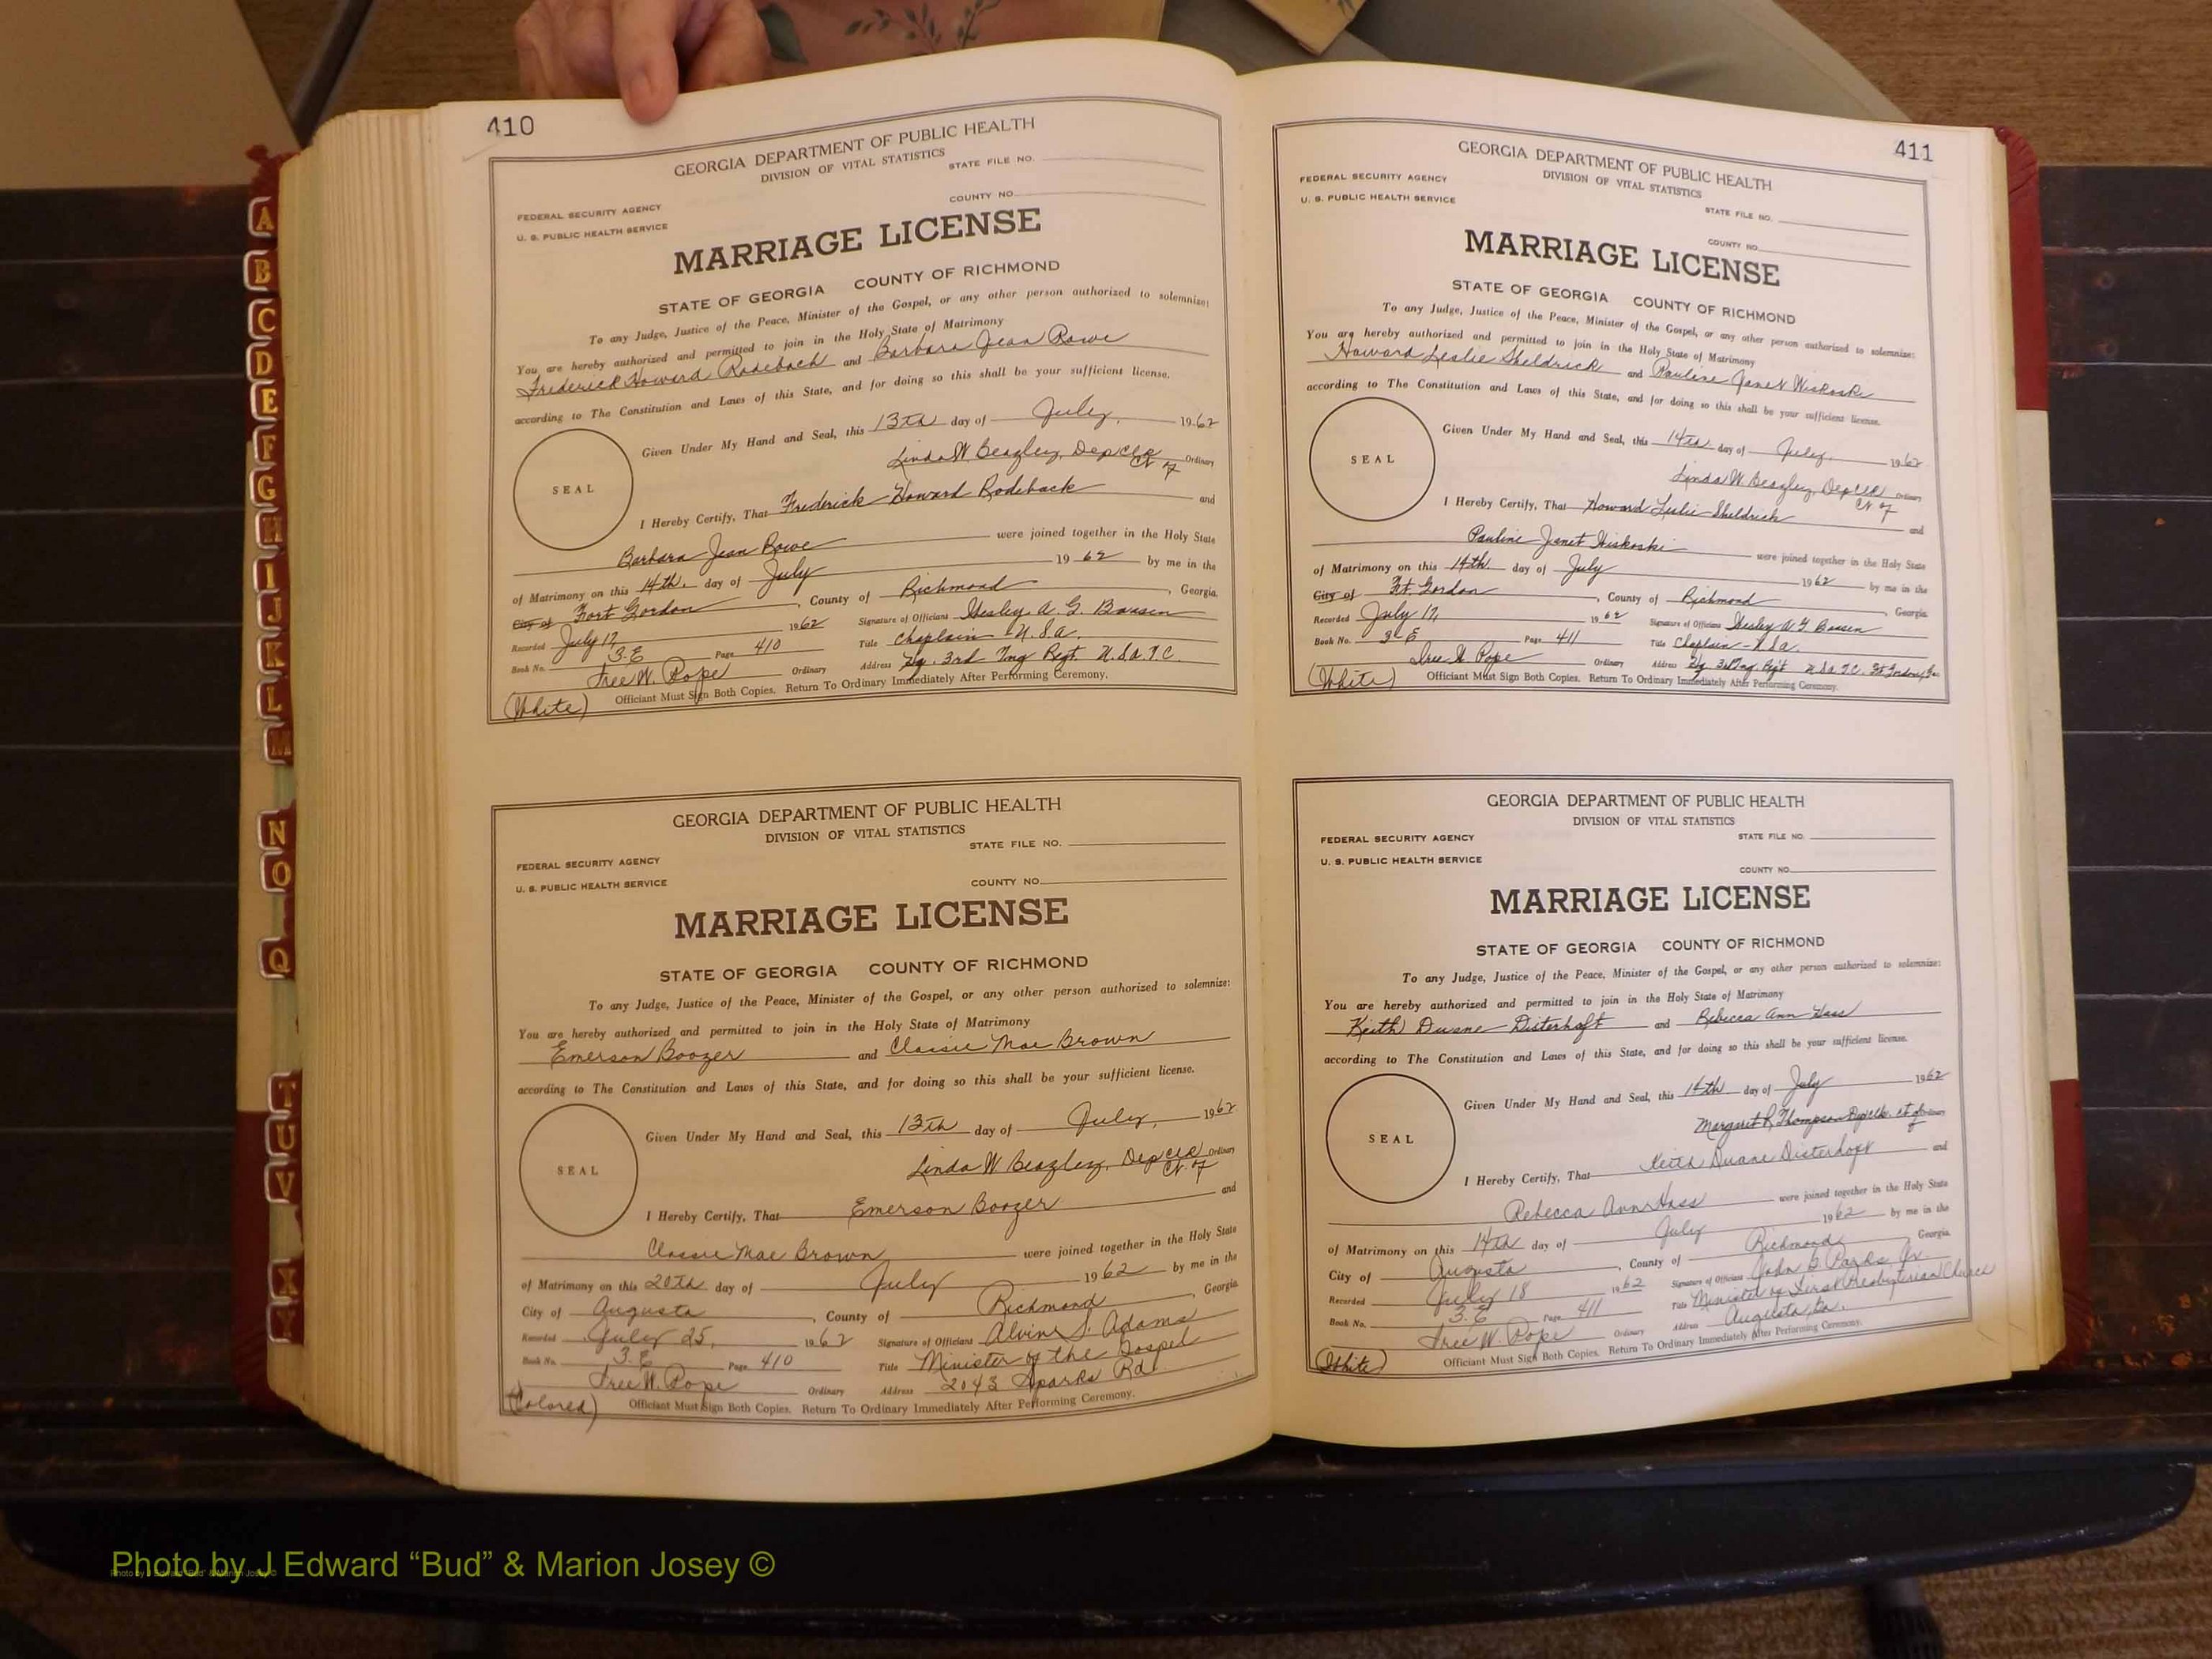 410
GEORGIA DEPARTMENT OF PUBLIC HEALTH
DIVISION OF VITAL STATISTICS
STATE FILE NO.
COUNTY NO.
FEDERAL SECURITY AGENCY
U. S. PUBLIC HEALTH SERVICE
MARRIAGE LICENSE
STATE OF GEORGIA COUNTY OF RICHMOND
To any Judge, Justice of the Peace, Minister of the Gospel, or any other person authorized to solemnize:
You are hereby authorized and permitted to join in the Holy State of Matrimony
Frederick Howard Rodeback and Barbara Jean Rowe
according to The Constitution and Laws of this State, and for doing so this shall be your sufficient license.
SEAL
Given Under My Hand and Seal, this 13th day of July, 1962
Linda W Beazley, Dep Clk Ordinary
I Hereby Certify, That Frederick Howard Rodeback and
Barbara Jean Rowe were joined together in the Holy State
of Matrimony on this 14th. day of July 1962 by me in the
City of Fort Gordon, County of Richmond, Georgia.
Recorded July 17, 1962 Signature of Officiant Wesley A. G.
Book No. 3-E Page 410 Title Chaplain U.S.A.
Free W. Pope Ordinary Address Hq. 3rd Tng Regt. U.S.A.T.C.
(White) Officiant Must Sign Both Copies. Return To Ordinary Immediately After Performing Ceremony.
GEORGIA DEPARTMENT OF PUBLIC HEALTH
DIVISION OF VITAL STATISTICS
STATE FILE NO.
FEDERAL SECURITY AGENCY
U. S. PUBLIC HEALTH SERVICE
COUNTY NO.
MARRIAGE LICENSE
STATE OF GEORGIA COUNTY OF RICHMOND
To any Judge, Justice of the Peace, Minister of the Gospel, or any other person authorized to solemnize:
You are hereby authorized and permitted to join in the Holy State of Matrimony
Emerson Boozer and Classie Mae Brown
according to The Constitution and Laws of this State, and for doing so this shall be your sufficient license.
SEAL
Given Under My Hand and Seal, this 13th day of July, 1962
Linda W Beazley, Dep Clk Ordinary
I Hereby Certify, That Emerson Boozer and
Classie Mae Brown were joined together in the Holy State
of Matrimony on this 20th day of July 1962 by me in the
City of Augusta, County of Richmond, Georgia
Recorded July 25, 1962 Signature of Officiant Alvin J. Adams
Book No. 3-E Page 410 Title Minister of the Gospel
Free W. Pope Ordinary Address 2043 Sparks Rd
(Colored) Officiant Must Sign Both Copies. Return To Ordinary Immediately After Performing Ceremony.
411
GEORGIA DEPARTMENT OF PUBLIC HEALTH
DIVISION OF VITAL STATISTICS
FEDERAL SECURITY AGENCY
U. S. PUBLIC HEALTH SERVICE
STATE FILE NO.
COUNTY NO.
MARRIAGE LICENSE
STATE OF GEORGIA COUNTY OF RICHMOND
To any Judge, Justice of the Peace, Minister of the Gospel, or any other person authorized to solemnize:
You are hereby authorized and permitted to join in the Holy State of Matrimony
Howard Leslie Sheldrick and Pauline Janet Wiskoski
according to The Constitution and Laws of this State, and for doing so this shall be your sufficient license.
SEAL
Given Under My Hand and Seal, this 14th day of July, 1962
Linda W Beazley, Dep Clk Ordinary
I Hereby Certify, That Howard Leslie Sheldrick and
Pauline Janet Wiskoski were joined together in the Holy State
of Matrimony on this 14th. day of July 1962 by me in the
City of Ft. Gordon, County of Richmond, Georgia
Recorded July 17, 1962 Signature of Officiant Wesley A G
Book No. 3-E Page 411 Title Chaplain - U.S.A.
Free W Pope Ordinary Address Hq 3rd Tng Reg't U.S.A.T.C. Ft Gordon, Ga.
(White) Officiant Must Sign Both Copies. Return To Ordinary Immediately After Performing Ceremony.
GEORGIA DEPARTMENT OF PUBLIC HEALTH
DIVISION OF VITAL STATISTICS
FEDERAL SECURITY AGENCY
STATE FILE NO.
U. S. PUBLIC HEALTH SERVICE
COUNTY NO.
MARRIAGE LICENSE
STATE OF GEORGIA COUNTY OF RICHMOND
To any Judge, Justice of the Peace, Minister of the Gospel, or any other person authorized to solemnize:
You are hereby authorized and permitted to join in the Holy State of Matrimony
Keith Duane Disterhoft and Rebecca Ann Hass
according to The Constitution and Laws of this State, and for doing so this shall be your sufficient license.
SEAL
Given Under My Hand and Seal, this 14th day of July 1962
Margaret R Thompson Dep Clk. Ct of Ordinary
I Hereby Certify, That Keith Duane Disterhoft and
Rebecca Ann Hass were joined together in the Holy State
of Matrimony on this 14th day of July 1962 by me in the
City of Augusta, County of Richmond, Georgia
Recorded July 18 1962 Signature of Officiant John G Parks Jr.
Book No. 3-E Page 411 Title Minister of First Presbyterian Church
Free W. Pope Ordinary Address Augusta, Ga.
(White) Officiant Must Sign Both Copies. Return To Ordinary Immediately After Performing Ceremony.
A
B
C
D
E
F
G
H
I
J
K
L
M
N
O
Q
T
U
V
X
Y
Photo by J Edward “Bud” & Marion Josey ©
Photo by J Edward "Bud" & Marion Josey ©